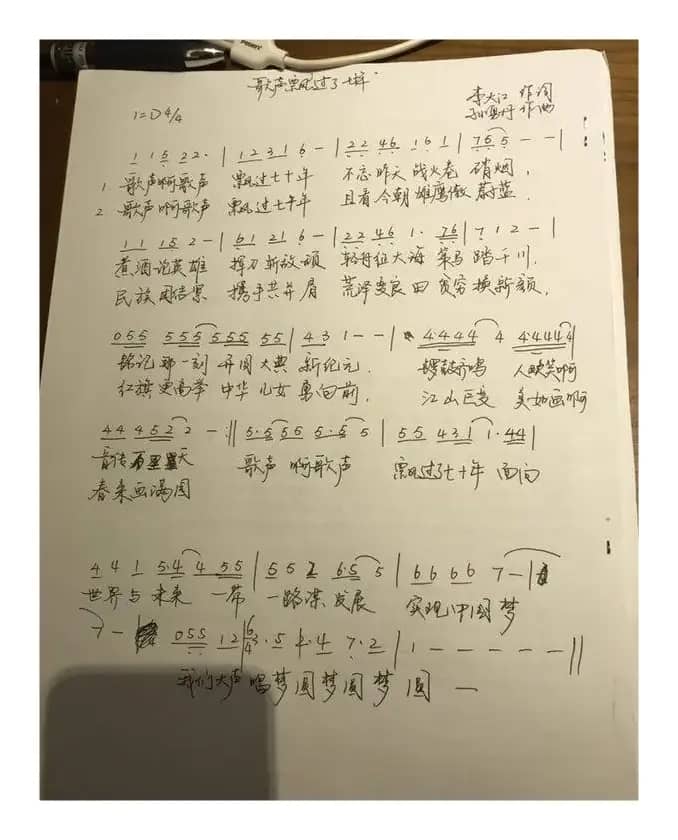 歌声飘过了七十年
李大江 作词
1=D 4/4
作曲
1 15 22· | 1231 6 - | 22 46 161 | 765 - - |
1. 歌声啊歌声 飘过七十年 不忘昨天 战火老 硝烟,
2. 歌声啊歌声 飘过七十年 且看今朝 雄鹰傲 蔚蓝.
11 152 - | 61 21 6 - | 22 46 1· 76 | 7 1 2 - |
煮酒论英雄 挥刀斩敌顽 轻舟征大海 策马踏千川.
民族团结紧 携手共并肩 荒泽变良田 贫穷换新颜.
055 555 555 55 | 4 3 1 - - | 4·444 4 4·444 4 |
铭记那一刻 开国大典 新纪元. 锣鼓齐鸣 人欢笑啊
红旗更高举 中华儿女 勇向前. 江山巨变 美如画啊
44 4522 - :|| 5·555 5·5 5 | 55 431 1·44 |
歌声 啊歌声 飘过了七十年 面向
春来画满园
4 4 1 5·4 4 55 | 55 2 6·5 5 | 66 66 7 - |
世界与未来 一带 一路谋发展 实现中国梦
7 - | 055 12 | 6/4 3·5 2·4 7·2 | 1 - - - - - ||
我们大声 唱梦圆梦圆梦 圆 —